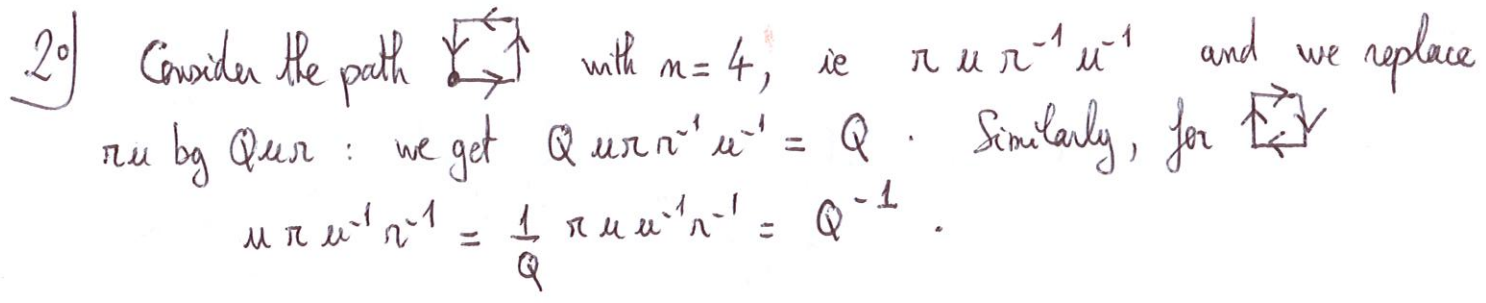 2°) Consider the path with n = 4, ie r u r⁻¹ u⁻¹ and we replace
ru by Qur : we get Q u r r⁻¹ u⁻¹ = Q . Similarly, for
u r u⁻¹ r⁻¹ = 1/Q r u u⁻¹ r⁻¹ = Q⁻¹ .